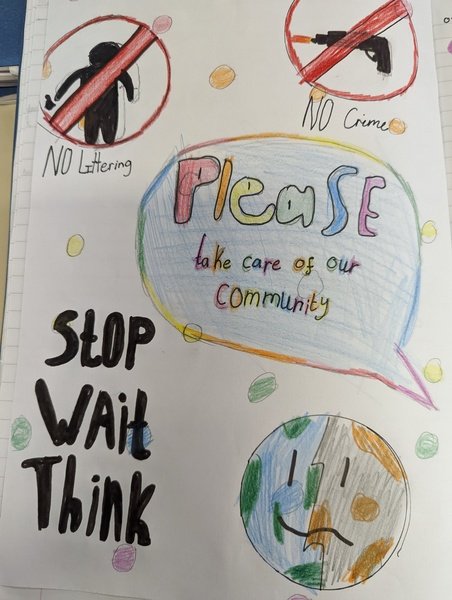 NO Littering
NO Creme
PleaSE
take care of our
community
StOP
WAit
Think